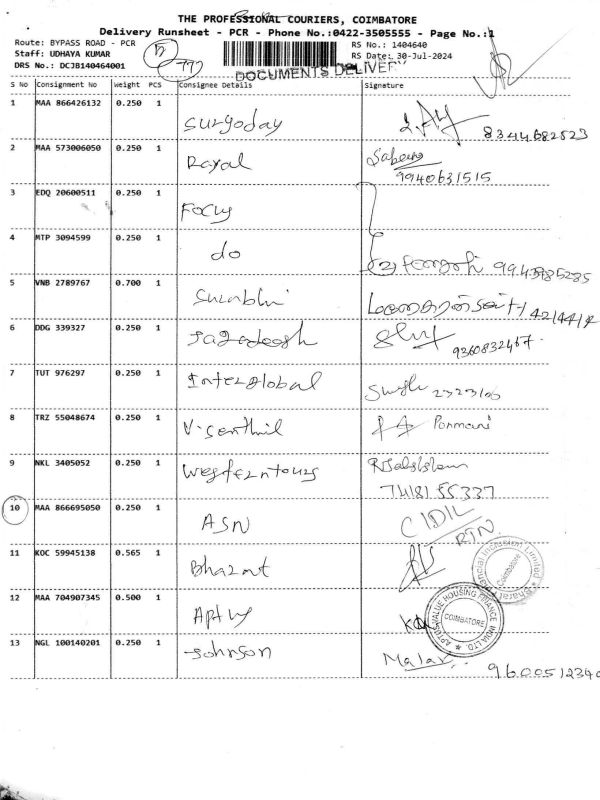 THE PROFESSIONAL COURIERS, COIMBATORE
Delivery Runsheet - PCR - Phone No.:0422-3505555 - Page No.:1
Route: BYPASS ROAD - PCR
Staff: UDHAYA KUMAR
DRS No.: DCJB140464001
RS No.: 1404640
RS Date: 30-Jul-2024
DOCUMENTS DELIVERY
S No Consignment No Weight PCS Consignee Details Signature
1 MAA 866426132 0.250 1 Suryoday 8344682523
2 MAA 573006050 0.250 1 Rayal
9940631515
3 EDQ 20600511 0.250 1 Focus
4 MTP 3094599 0.250 1 do 9943985285
5 VNB 2789767 0.700 1 Surabhi
6 DDG 339327 0.250 1 Jagadeesh
9360832467
7 TUT 976297 0.250 1 Interglobal 2323100
8 TRZ 55048674 0.250 1 V. Senthil Ponmani
9 NKL 3405052 0.250 1 Western tours
7418155337
10 MAA 866695050 0.250 1 ASN CIDIL
RTN
11 KOC 59945138 0.565 1 Bharat
Bharat Financial Inclusion Limited
Coimbatore
12 MAA 704907345 0.500 1 Aptus
APTUS VALUE HOUSING FINANCE INDIA LTD.
COIMBATORE
13 NGL 100140201 0.250 1 Johnson Malar